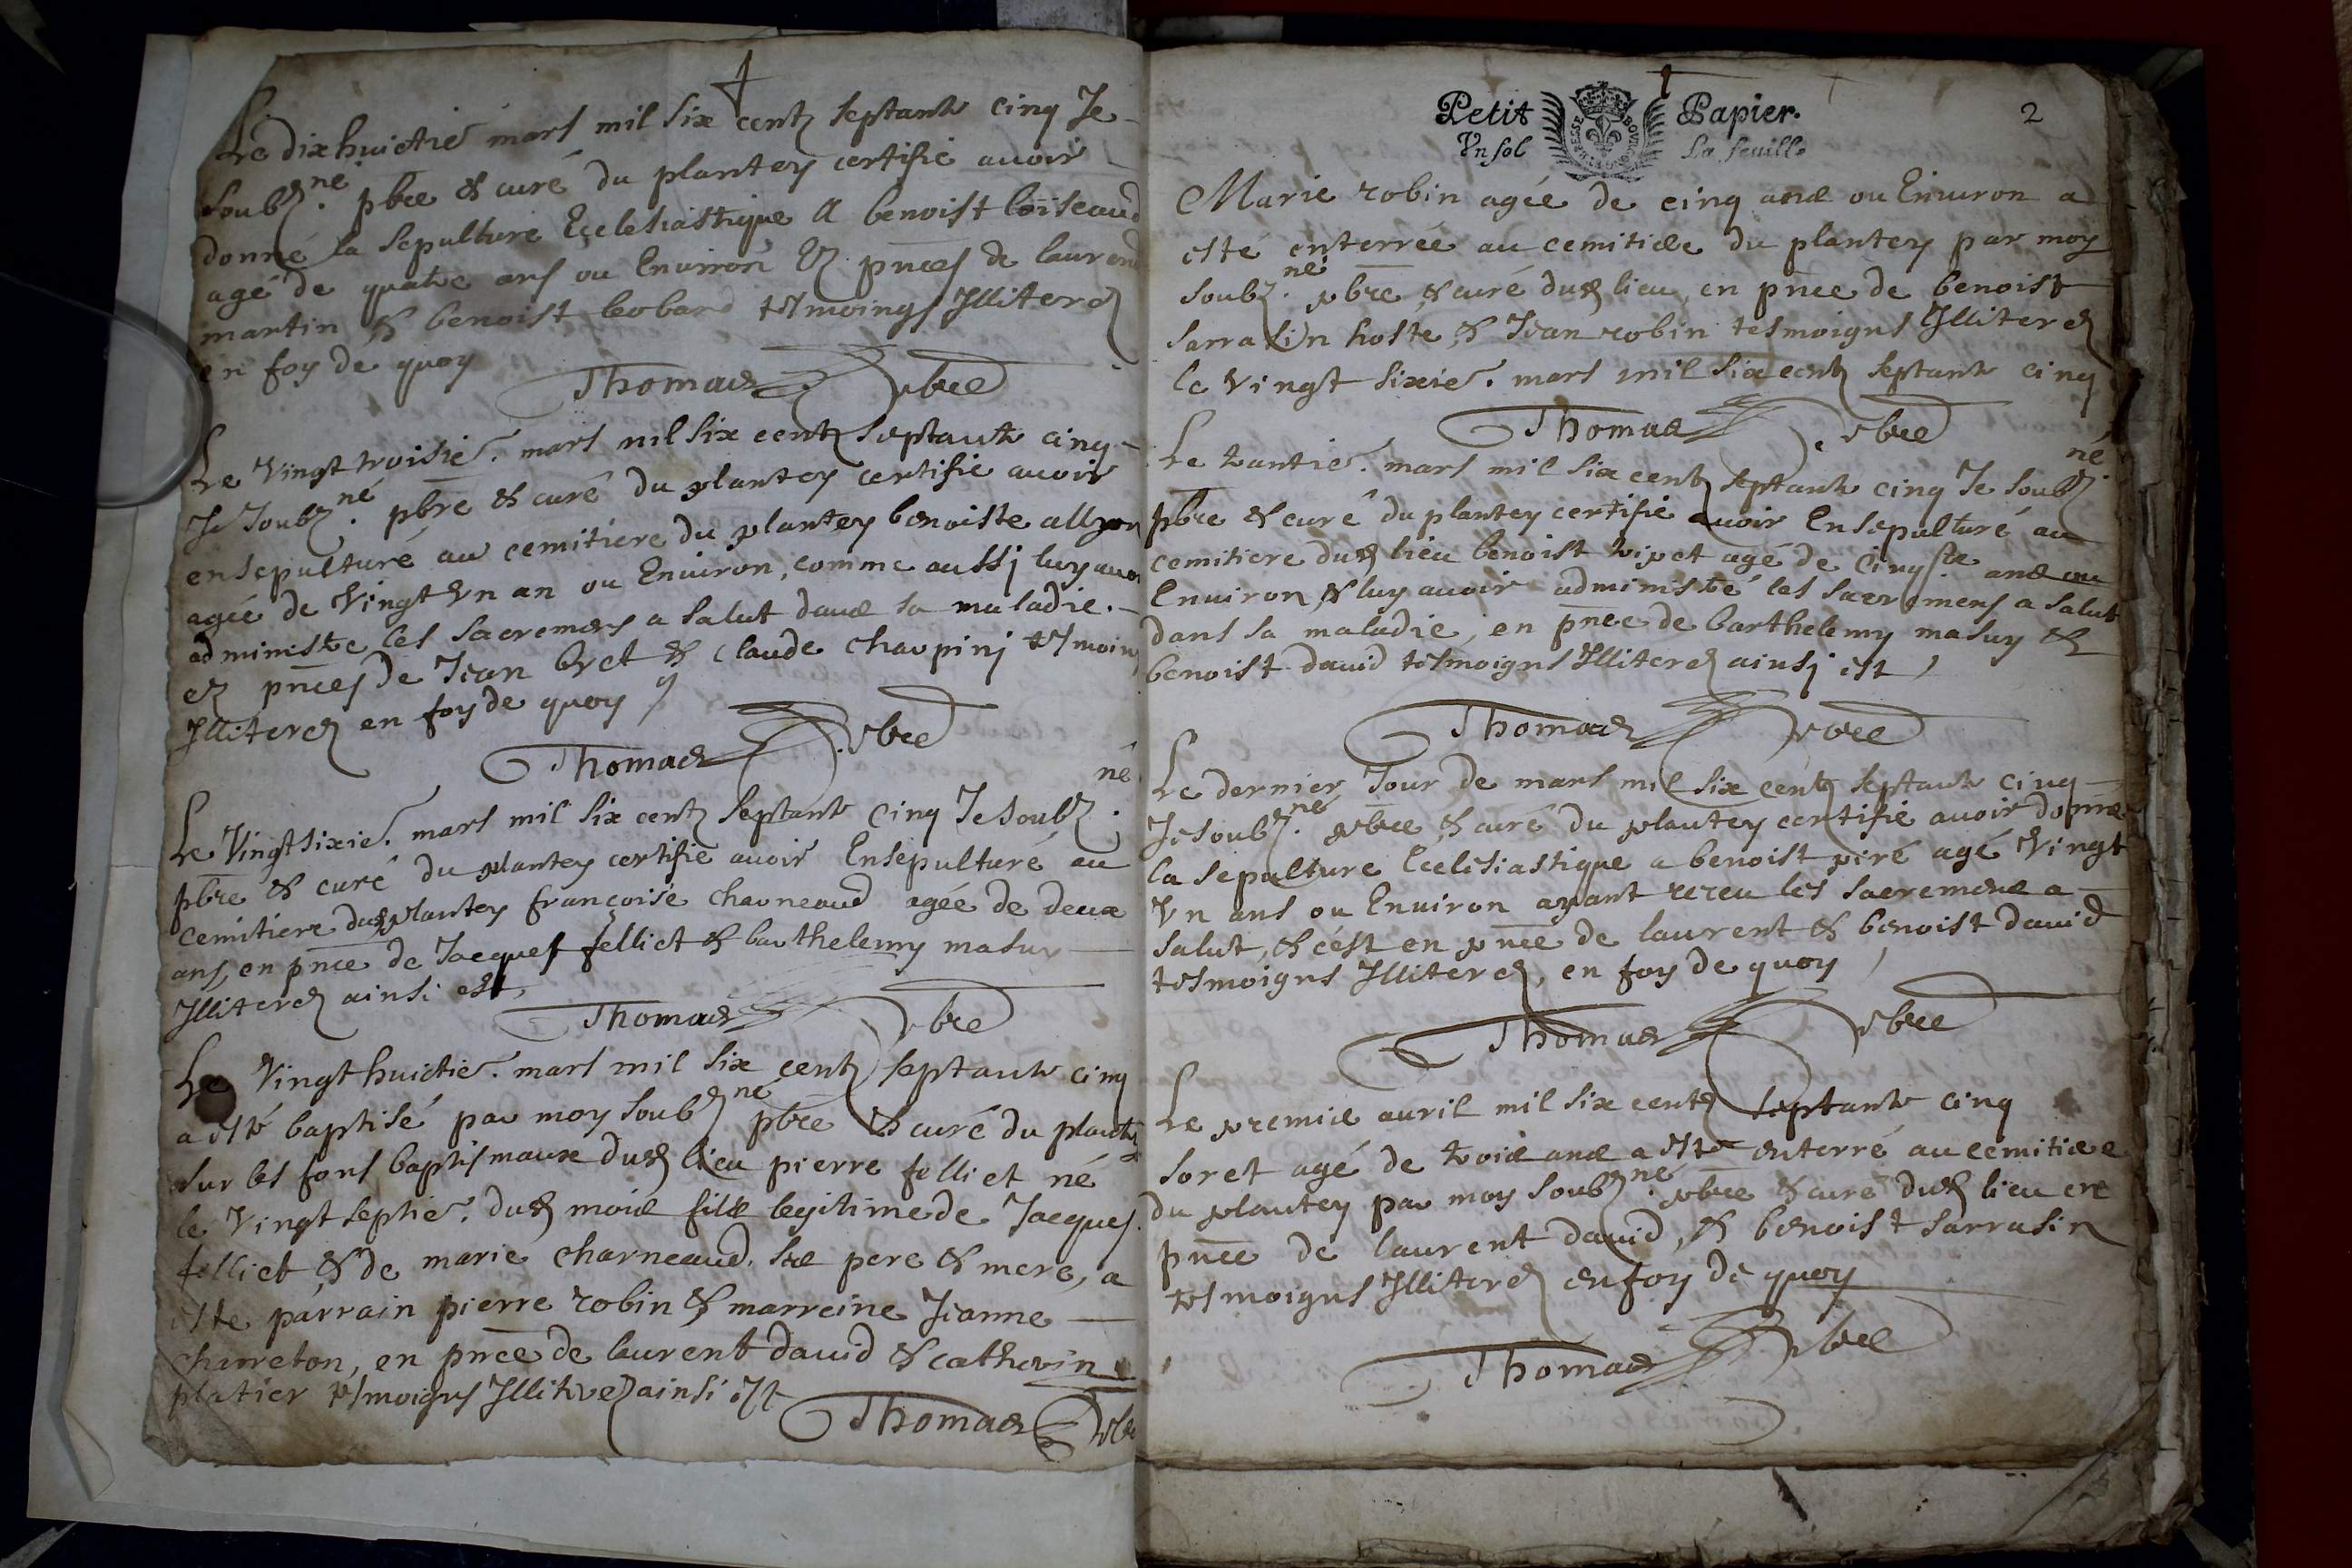 Le dixhuictie. mars mil six centz septante cinq Je
soubz.né pbre & curé du plantey certifie avoir
donné la sepulture Ecclesiastique A benoist loiseaud
agé de quatre ans ou Environ Ez pnces de laurend
martin & benoist bobard tesmoings Jlliterez
en foy de quoy
Thomas pbre
Le Vingt troisie. mars mil six centz septante cinq
Je soubz.né pbre & curé du plantey certifie avoir
ensepulturé au cemitiere du plantey benoiste
agée de Vingt Vn an ou Enuiron, comme aussj luy avoir
administre les sacremens a salut dans sa maladie.
ez pnces de Jean & claude chaupinj tesmoins
Jlliterez en foy de quoy
Thomas pbre
Le Vingt sixie. mars mil six centz septante cinq Je soubz.né
pbre & curé du plantey certifie avoir Ensepulturé au
cemitiere dud plantey françoise charneaud agée de deux
ans, en pnce de Jacques felliet & barthelemy masuy
Jlliterez ainsi est,
Thomas pbre
Le Vingt huictie. mars mil six centz septante cinq
a esté baptisé par moy soubz.né pbre & curé du plantey
sur les fons baptismaux dud lieu pierre felliet né
le Vingt septie. dud mois fils legitime de Jacques
felliet & de marie charneaud. ses pere & mere, a
este parrain pierre robin & marreine Jeanne
charreton, en pnce de laurent david & catherin
platier tesmoigns Jlliterez ainsi est
Thomas pbre
Petit Papier.
Vn sol La feuille
2
Marie robin agée de cinq ans ou Enuiron a
esté enterrée au cemitiere du plantey par moy
soubz.né pbre & curé dud lieu, en pnce de benoist
sarrasin hoste & Jean robin tesmoigns Jlliterez
le vingt sixie. mars mil six centz septante cinq
Thomas pbre
Le trantie. mars mil six centz septante cinq Je soubz.né
pbre & curé du plantey certifie avoir Ensepulturé au
cemitiere dud lieu benoist agé de cinqte ans ou
Enuiron, & luy avoir administé les sacremens a salut
dans sa maladie, en pnce de barthelemy masuy &
benoist david tesmoigns Jlliterez ainsj est,
Thomas pbre
Le dernier Jour de mars mil six centz septante cinq
Je soubz.né pbre & curé du plantey certifie avoir donné
la sepulture Ecclesiastique a benoist piré agé Vingt
Vn ans ou Enuiron ayant receu les sacremens a
salut, & c'est en pnce de laurent & benoist david
tesmoigns Jlliterez, en foy de quoy,
Thomas pbre
Le premie avril mil six centz septante cinq
soret agé de trois ans a esté enterré au cemitiere
du plantey par moy soubz.né pbre & curé dud lieu en
pnce de laurent david, & benoist sarrasin
tesmoigns Jlliterez en foy de quoy
Thomas pbre